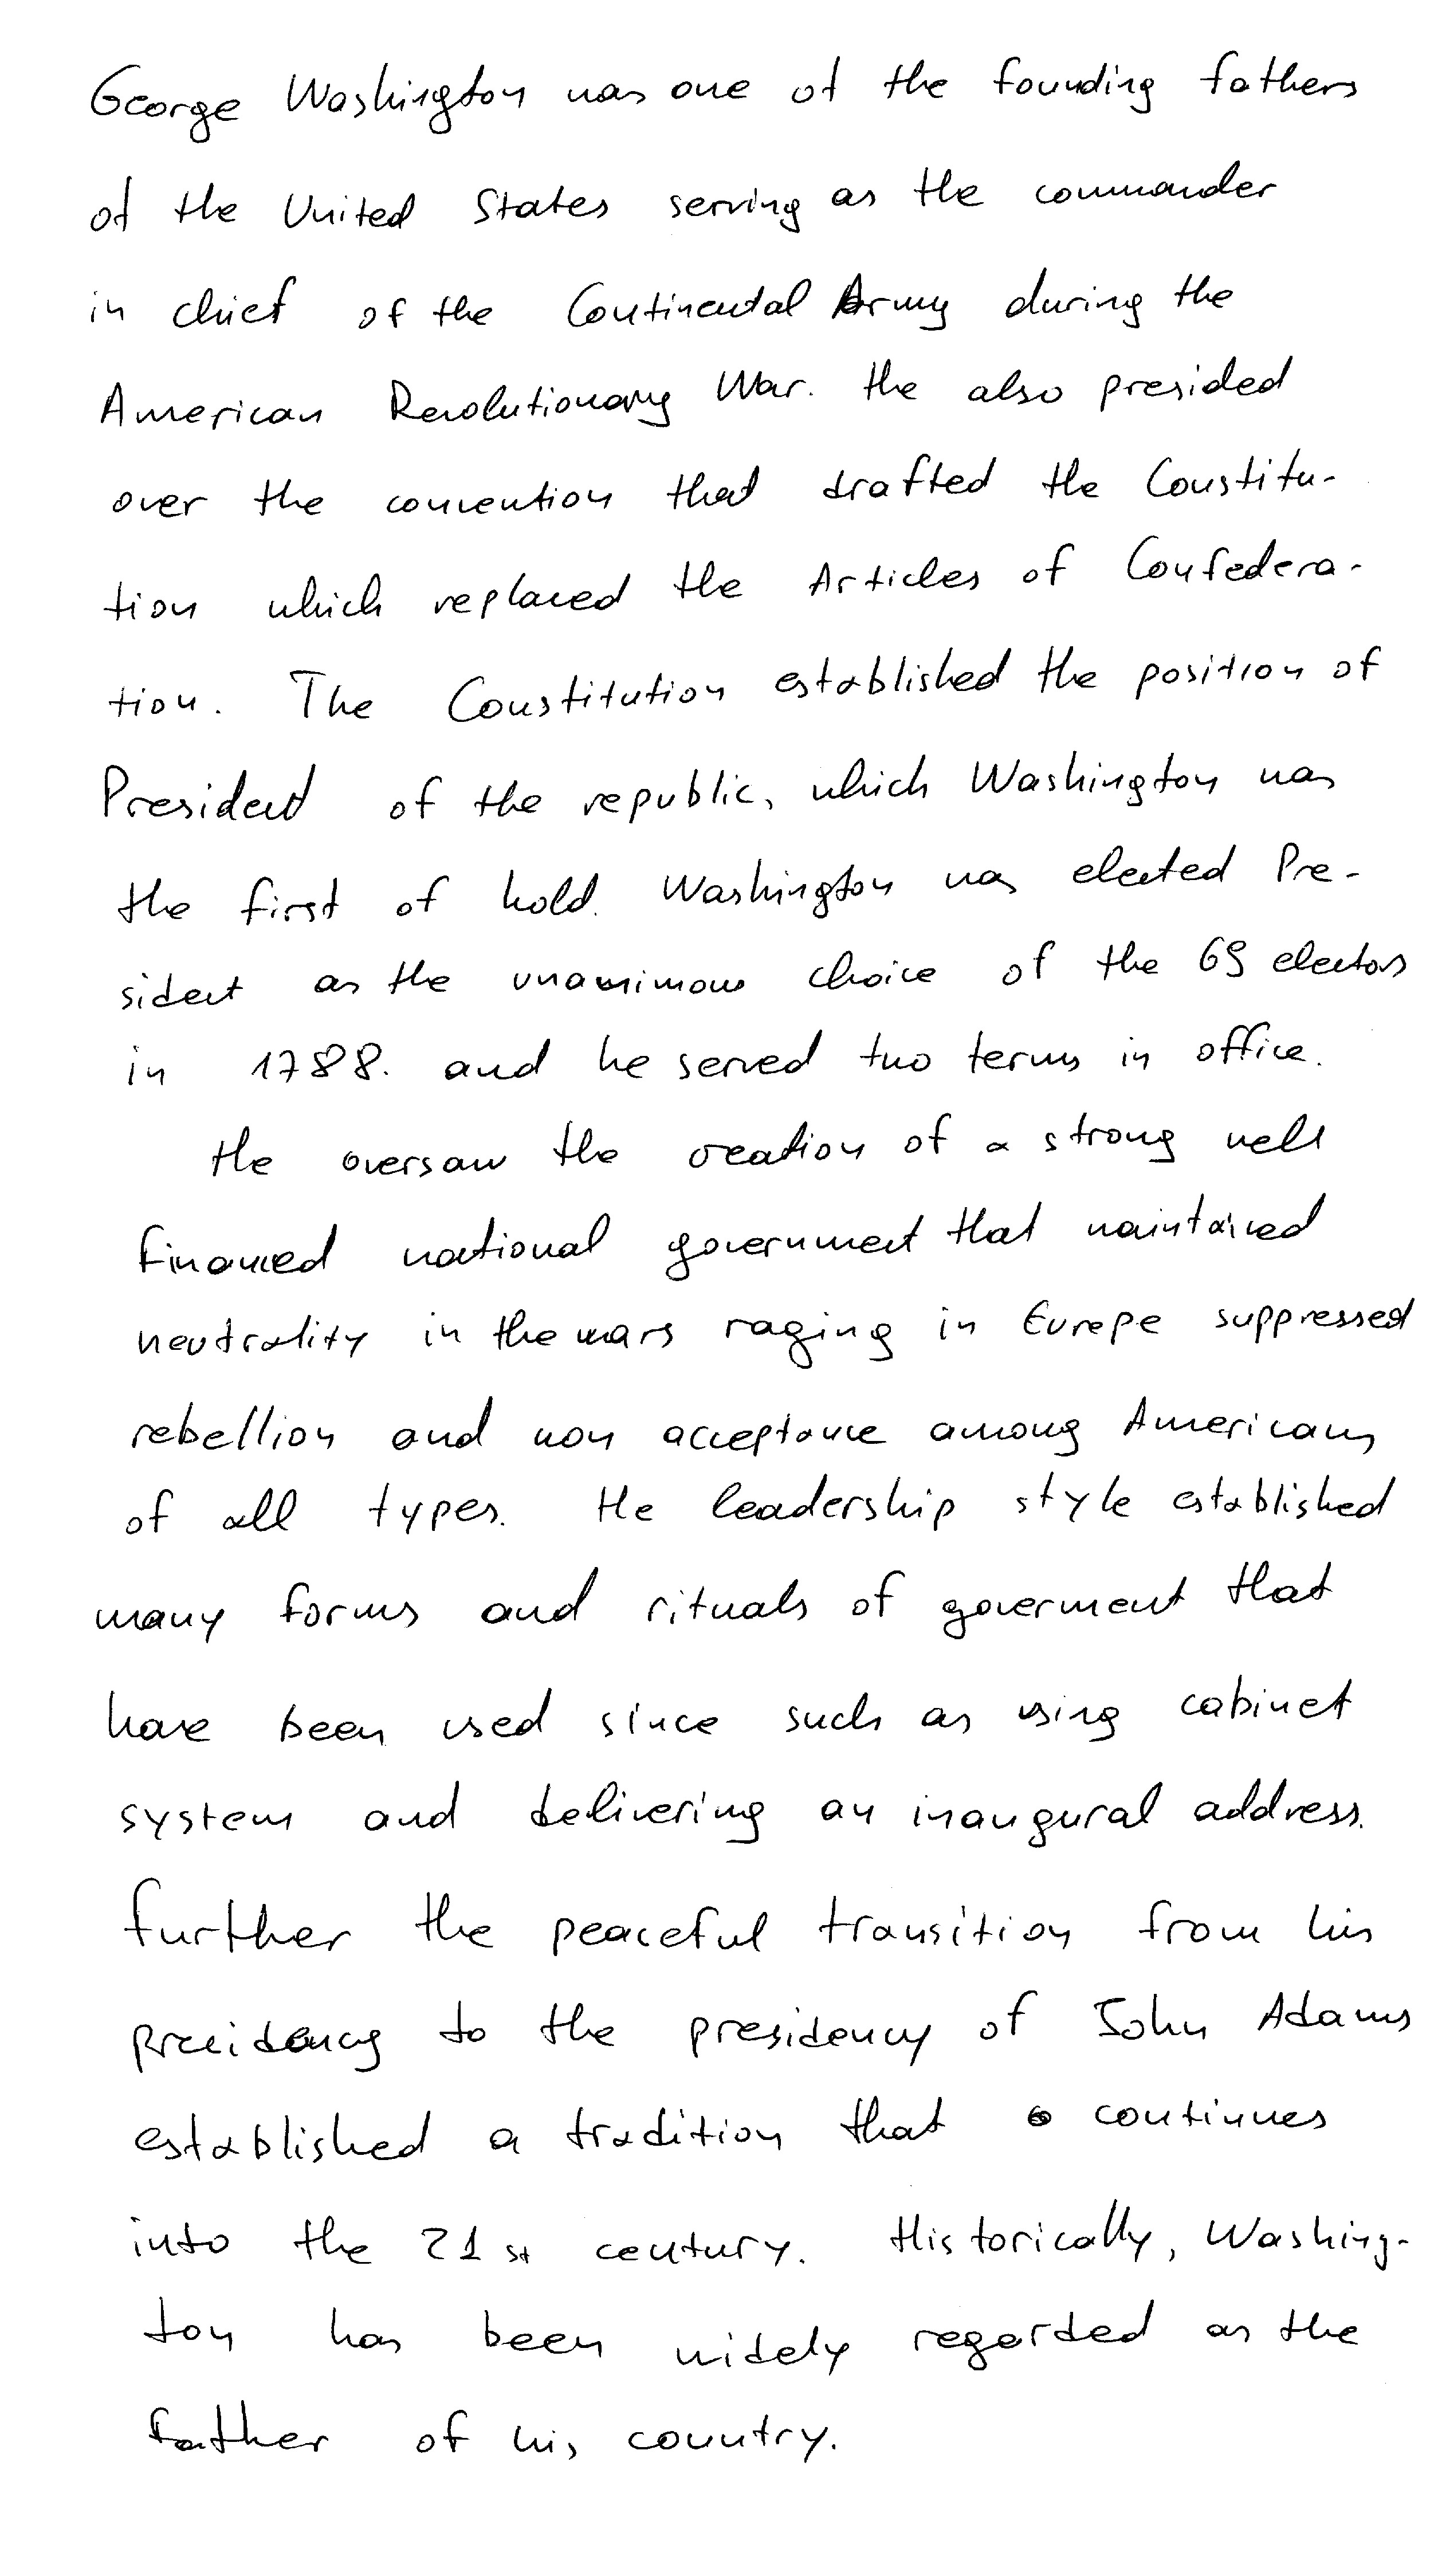 George Washington was one of the founding fathers
of the United States serving as the commander
in chief of the Continental Army during the
American Revolutionary War. He also presided
over the convention that drafted the Constitu-
tion which replaced the Articles of Confedera-
tion. The Constitution established the position of
President of the republic, which Washington was
the first of hold. Washington was elected Pre-
sident as the unanimous choice of the 69 electors
in 1788. and he served two terms in office.
He oversaw the creation of a strong well
financed national government that maintained
neutrality in the wars raging in Europe suppressed
rebellion and won acceptance among Americans
of all types. He leadership style established
many forms and rituals of goverment that
have been used since such as using cabinet
system and delivering an inaugural address.
Further the peaceful transition from his
presidency to the presidency of John Adams
established a tradition that continues
into the 21st century. Historically, Washing-
ton has been widely regarded as the
father of his country.